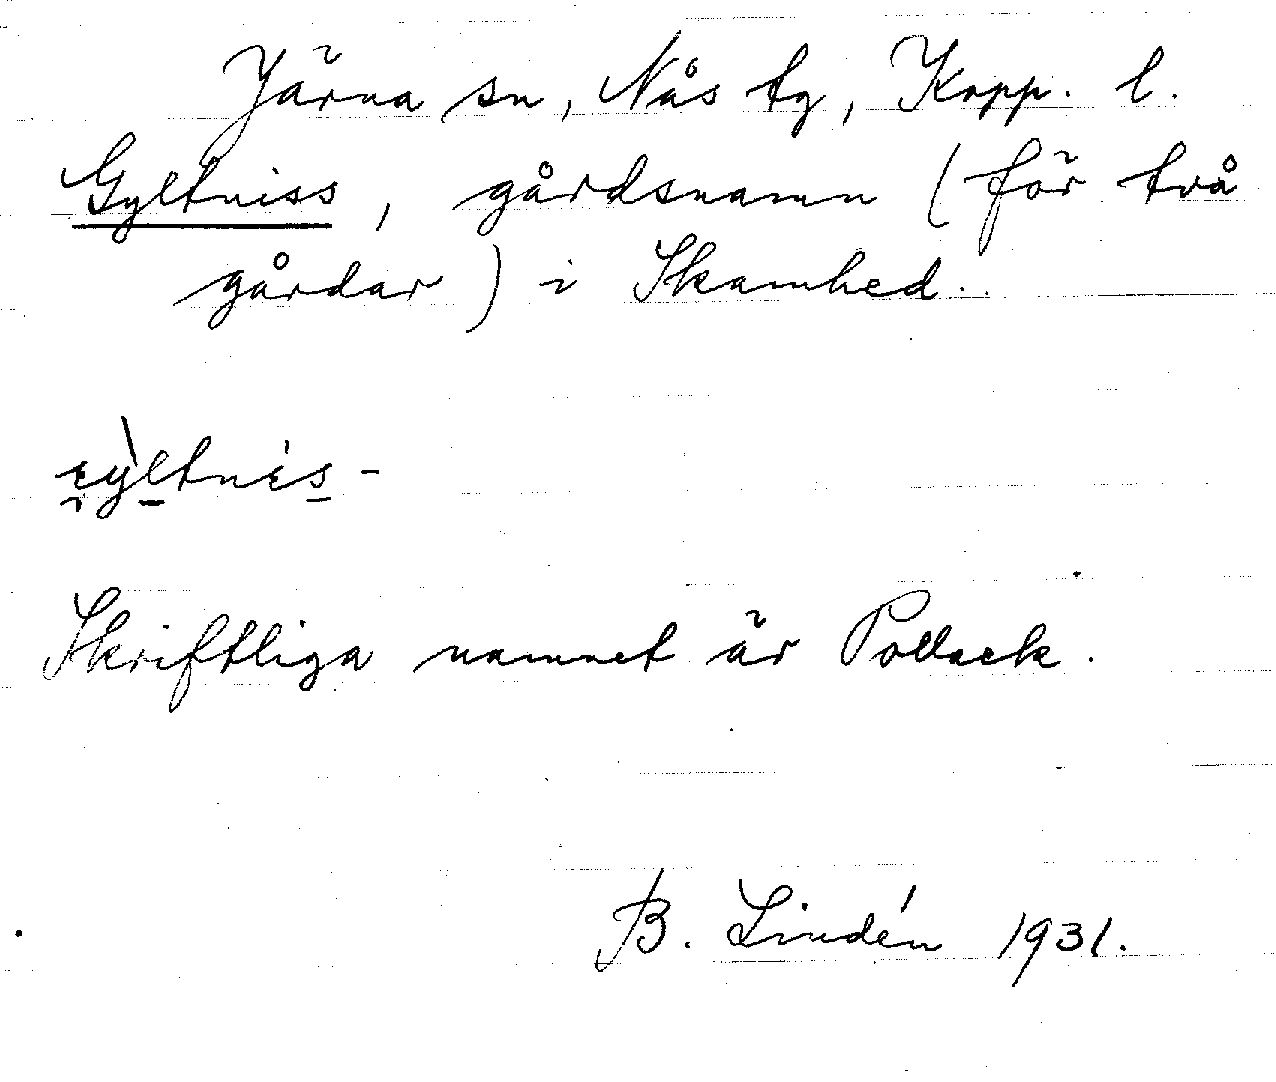 Järna sn, Nås tg, Kopp. l.
Gyltniss, gårdsnamn (för två
gårdar) i Skamhed.
Skriftliga namnet är Pollack.
B. Lindén 1931.